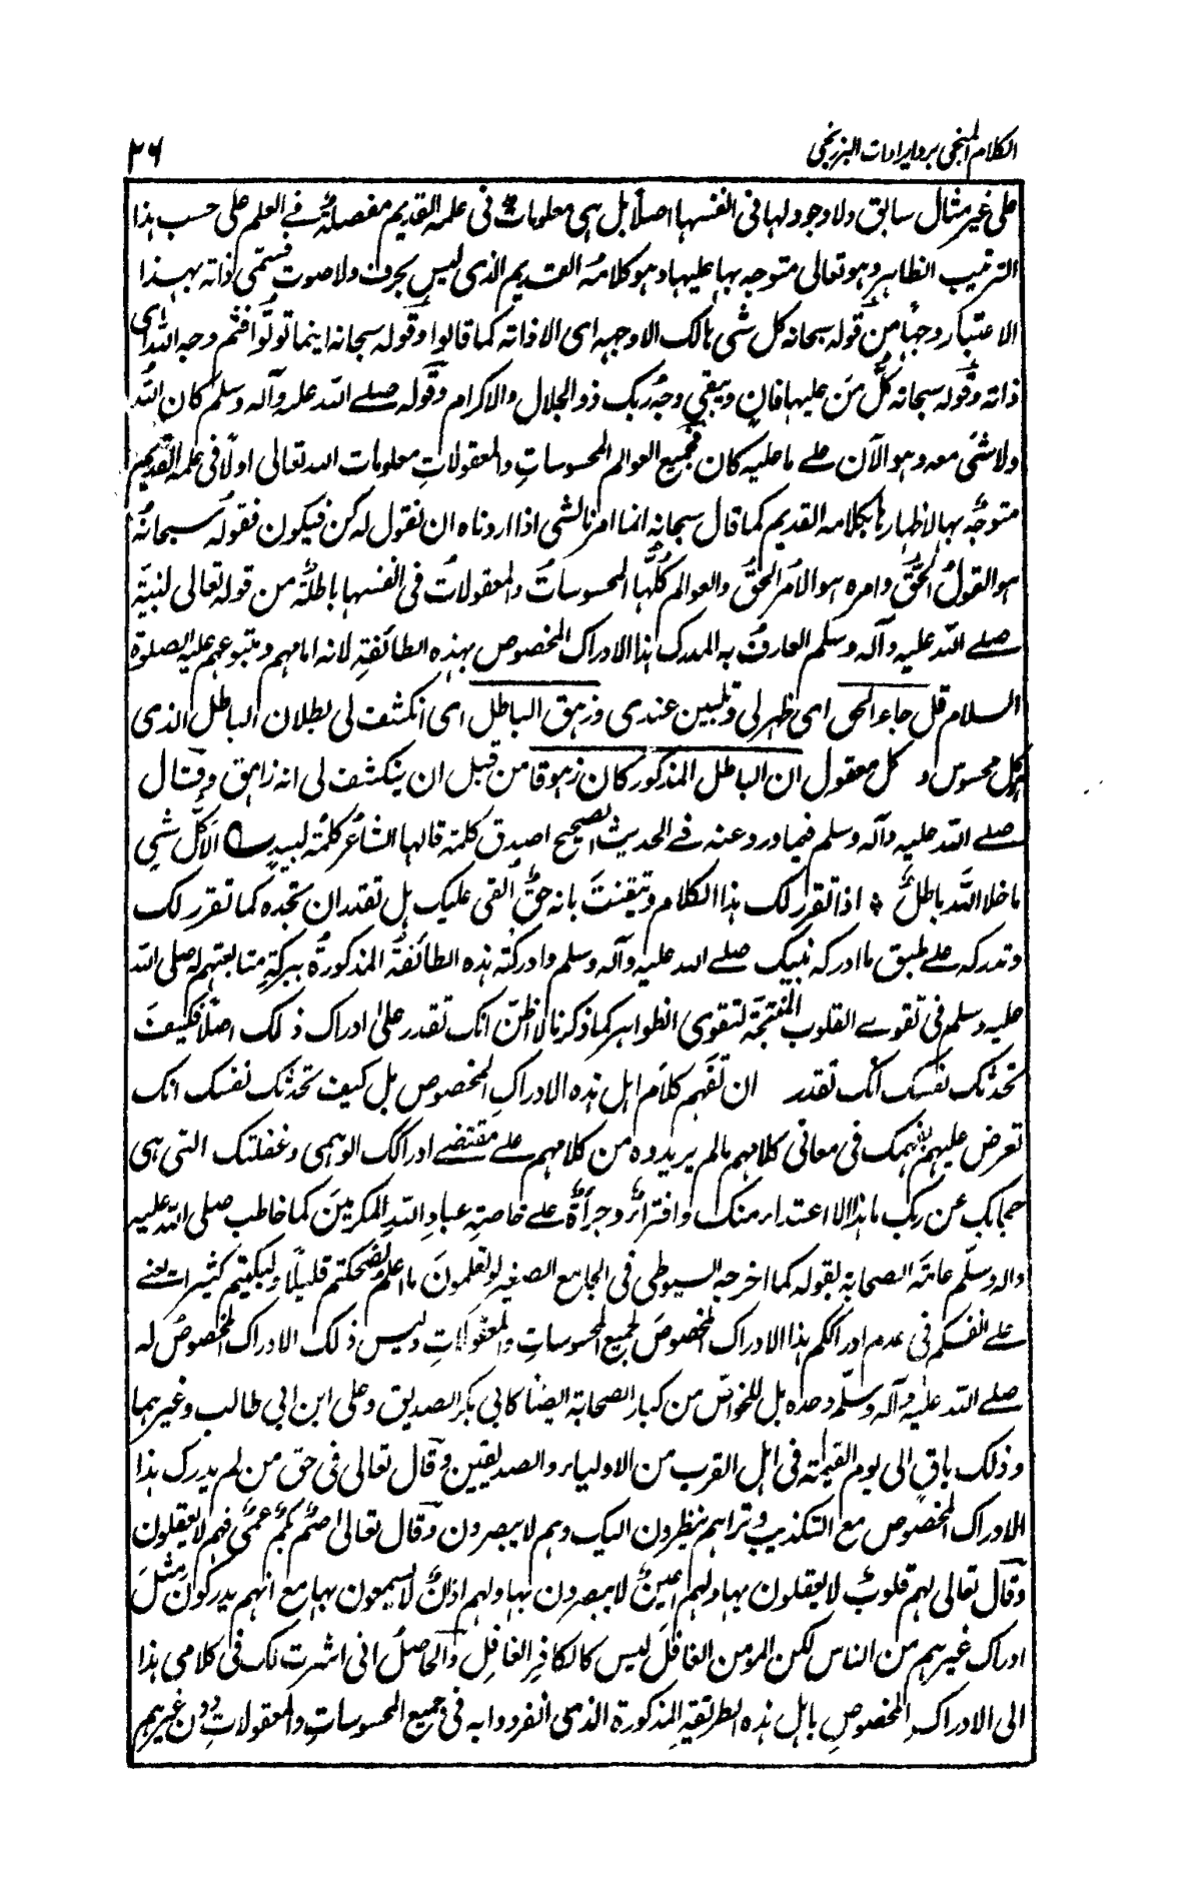 الكلام المنجي برد ايرادات البرزنجي
٢٦
على غير مثال سابق ولا وجود لها في انفسها اصلاً بل هي معلومات في علمه القديم مفصلة في العلم على حسب هذا
الترتيب الظاهر وهو تعالى متوجه بها عليها وهو كلامه القديم الذي ليس بحرف ولا صوت فسمّي ذاته بهذا
الاعتبار وجهاً من قوله سبحانه كل شي هالك الا وجهه اى الا ذاته كما قالوا وقوله سبحانه اينما تولّوا فثم وجه الله اى
ذاته وقوله سبحانه كلُّ مَن عليها فانٍ ويبقى وجهُ ربك ذو الجلال والاكرام وقوله صلے الله عليه وآله وسلم كان الله
ولا شئ معه وهو الآن علے ما عليه كان فجميع العوالم المحسوساتِ والمعقولاتِ معلومات الله تعالى اولاً في علمه القديم
متوجّه بها لاظهارها بكلامه القديم كما قال سبحانه انما امرنا لشئ اذا اردناه ان نقول له كن فيكون فقوله سبحانهُ
هو القولُ الحقُّ وامره هو الامرُ الحقُّ والعوالم كلُّها المحسوساتُ والمعقولاتُ في انفسها باطلةٌ من قوله تعالى لنبيّه
صلے الله عليه وآله وسلم العارف به المدرك هذا الادراك المخصوص بهذه الطائفةِ لانه امامهم ومتبوعهم عليه الصلوة
السلام قل جاء الحق اى ظهر لي وتبيين عندي وزهق الباطل اى انكشف لي بطلان الباطل الذى
هو كل محسوس و كل معقول ان الباطل المذكور كان زهوقا من قبل ان ينكشف لي انه زاهق وقال
صلے الله عليه وآله وسلم فيما ورد عنه في الحديث الصحيح اصدق كلمة قالها الشاعر كلمة لبيد الا كلّ شي
ما خلا الله باطلٌ * اذا تقرر لك هذا الكلام وتيقنتَ بانه حقٌّ القي عليك هل تقتدر ان تجده كما تقرر لك
وتدركه علے طبق ما ادركه نبيك صلے الله عليه وآله وسلم وادركته هذه الطائفةُ المذكورةُ ببركةِ متابعتهم له صلى الله
عليه وسلم في تقوے القلوب المنتجة لتقوى الظواهر كما ذكرنا لا اظنّ انك تقدر على ادراك ذلك اصلاً فكيفَ
تحدثك نفسك انك تقدر ان تفهم كلام اهل هذه الادراكِ المخصوص بل كيف تحدثك نفسك انك
تعرض عليهم بفهمك في معاني كلامهم ما لم يريدوه من كلامهم علے مقتضے ادراكك الوهمي وغفلتك التي هي
حجابك عن ربك ما هذا الا اعتداء منك وافتراءٌ وجرأةٌ علے خاصةِ عبادِ الله المكرمينَ كما خاطب صلى الله عليه
واله وسلّم عامّة الصحابة بقوله كما اخرجه السيوطي في الجامع الصغير لو تعلمونَ ما اعلم لضحكتم قليلاً ولبكيتم كثيرا يعنے
علے انفسكم في عدم ادراككم هذا الادراك المخصوصَ لجميع المحسوساتِ والمعقولاتِ وليس ذلك الادراك المخصوصُ له
صلے الله عليه وآله وسلّم وحده بل للخواصّ من كبار الصحابة ايضاً كابي بكر الصديق وعلى ابن ابي طالب وغيرهما
وذلك باقٍ الى يوم القيمة في اهل القرب من الاولياء والصديقين وقال تعالى في حق من لم يدرك هذا
الادراك المخصوص مع التكذيب وتراهم ينظرون اليك وهم لا يبصرون وقال تعالى صُمٌّ بُكمٌ عُميٌ فهم لا يعقلون
وقال تعالى لهم قلوبٌ لا يعقلون بها ولهم اعينٌ لا يبصرون بها ولهم اذانٌ لا يسمعون بها مع انهم يدركون مثل
ادراك غيرهم من الناس لكن المومن الغافل ليس كالكافرِ الغافلِ والحاصلُ اني اشرت لك في كلامي هذا
الى الادراكِ المخصوصِ باهل هذه الطريقةِ المذكورة الذى انفردوا به في جميع المحسوساتِ والمعقولاتِ دون غيرهم